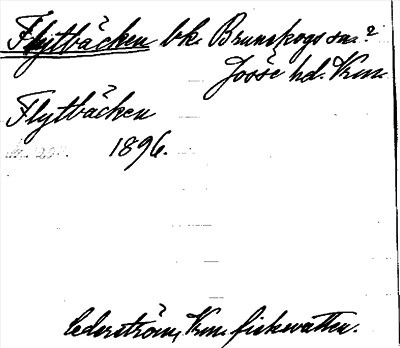 Flytbäcken bk. Brunskogs sn.?
Jösse hd. Vrm.
Flytbäcken
1896.
Cederström, Vrm. fiskevatten.